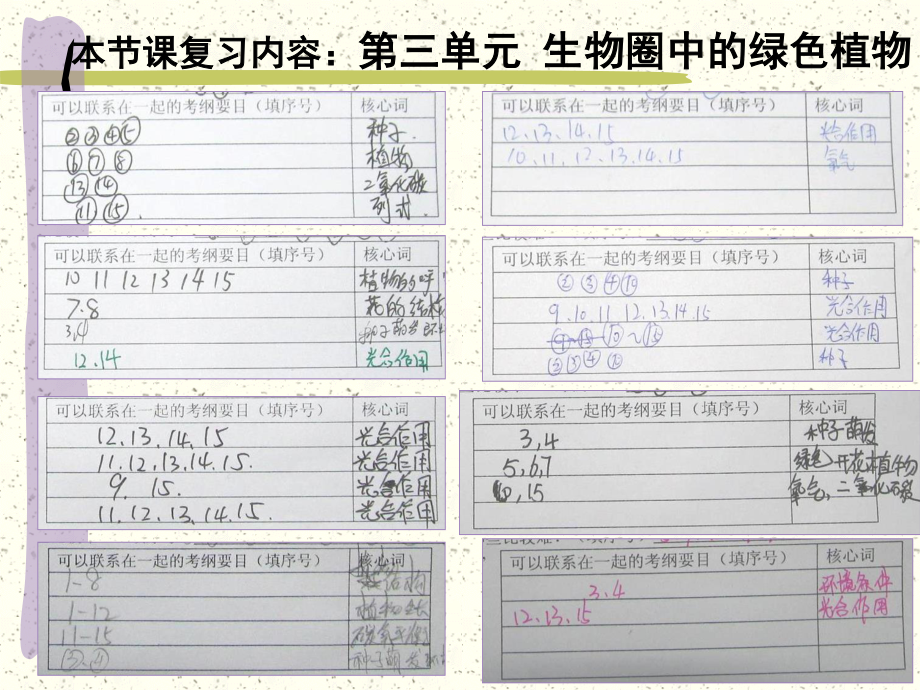 本节课复习内容：第三单元 生物圈中的绿色植物
可以联系在一起的考纲要目（填序号） 核心词
②③④⑤ 种子.
⑥ ⑦ ⑧ 植物
⑬ ⑭ 二氧化碳
⑪ ⑮. 列式.
可以联系在一起的考纲要目（填序号） 核心词
12.13.14.15 光合作用
10.11.12.13.14.15 氧气
可以联系在一起的考纲要目（填序号） 核心词
10 11 12 13 14 15 植物的呼
7.8 花的结构
3,4 种子萌发
12.14 光合作用
可以联系在一起的考纲要目（填序号） 核心词
②③④⑩ 种子
9.10.11 12.13.14.15 光合作用
光合作用
②③④ 种子
可以联系在一起的考纲要目（填序号） 核心词
12.13.14.15 光合作用
11.12.13.14.15. 光合作用
9. 15. 光合作用
11.12.13.14.15. 光合作用
可以联系在一起的考纲要目（填序号） 核心词
3,4 种子萌发
5,6,7 绿色开花植物
15 氧气、二氧化碳
可以联系在一起的考纲要目（填序号） 核心词
1-8
1-12 植物
11-15 碳氧平衡
③.④ 种子萌发
三比较难：（填序号）
可以联系在一起的考纲要目（填序号） 核心词
3,4 环境条件
12,13,15 光合作用